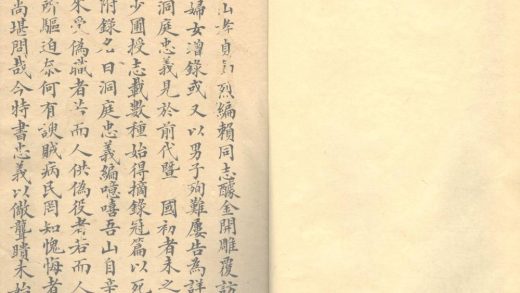 山孝貞節烈編賴同志醵金開雕覆訪
婦女增錄或又以男子殉難屢告為詳
洞庭忠義見於前代曁 國初者未之
少圃授志載數種始得摘錄冠篇以死
附錄名曰洞庭忠義編噫嘻吾山自辛
來受偽職者共而人供偽役者若而人
所驅迫奈何有諛賊病民罔知愧悔者
尚堪問哉今特書忠義以儆聾聵未始